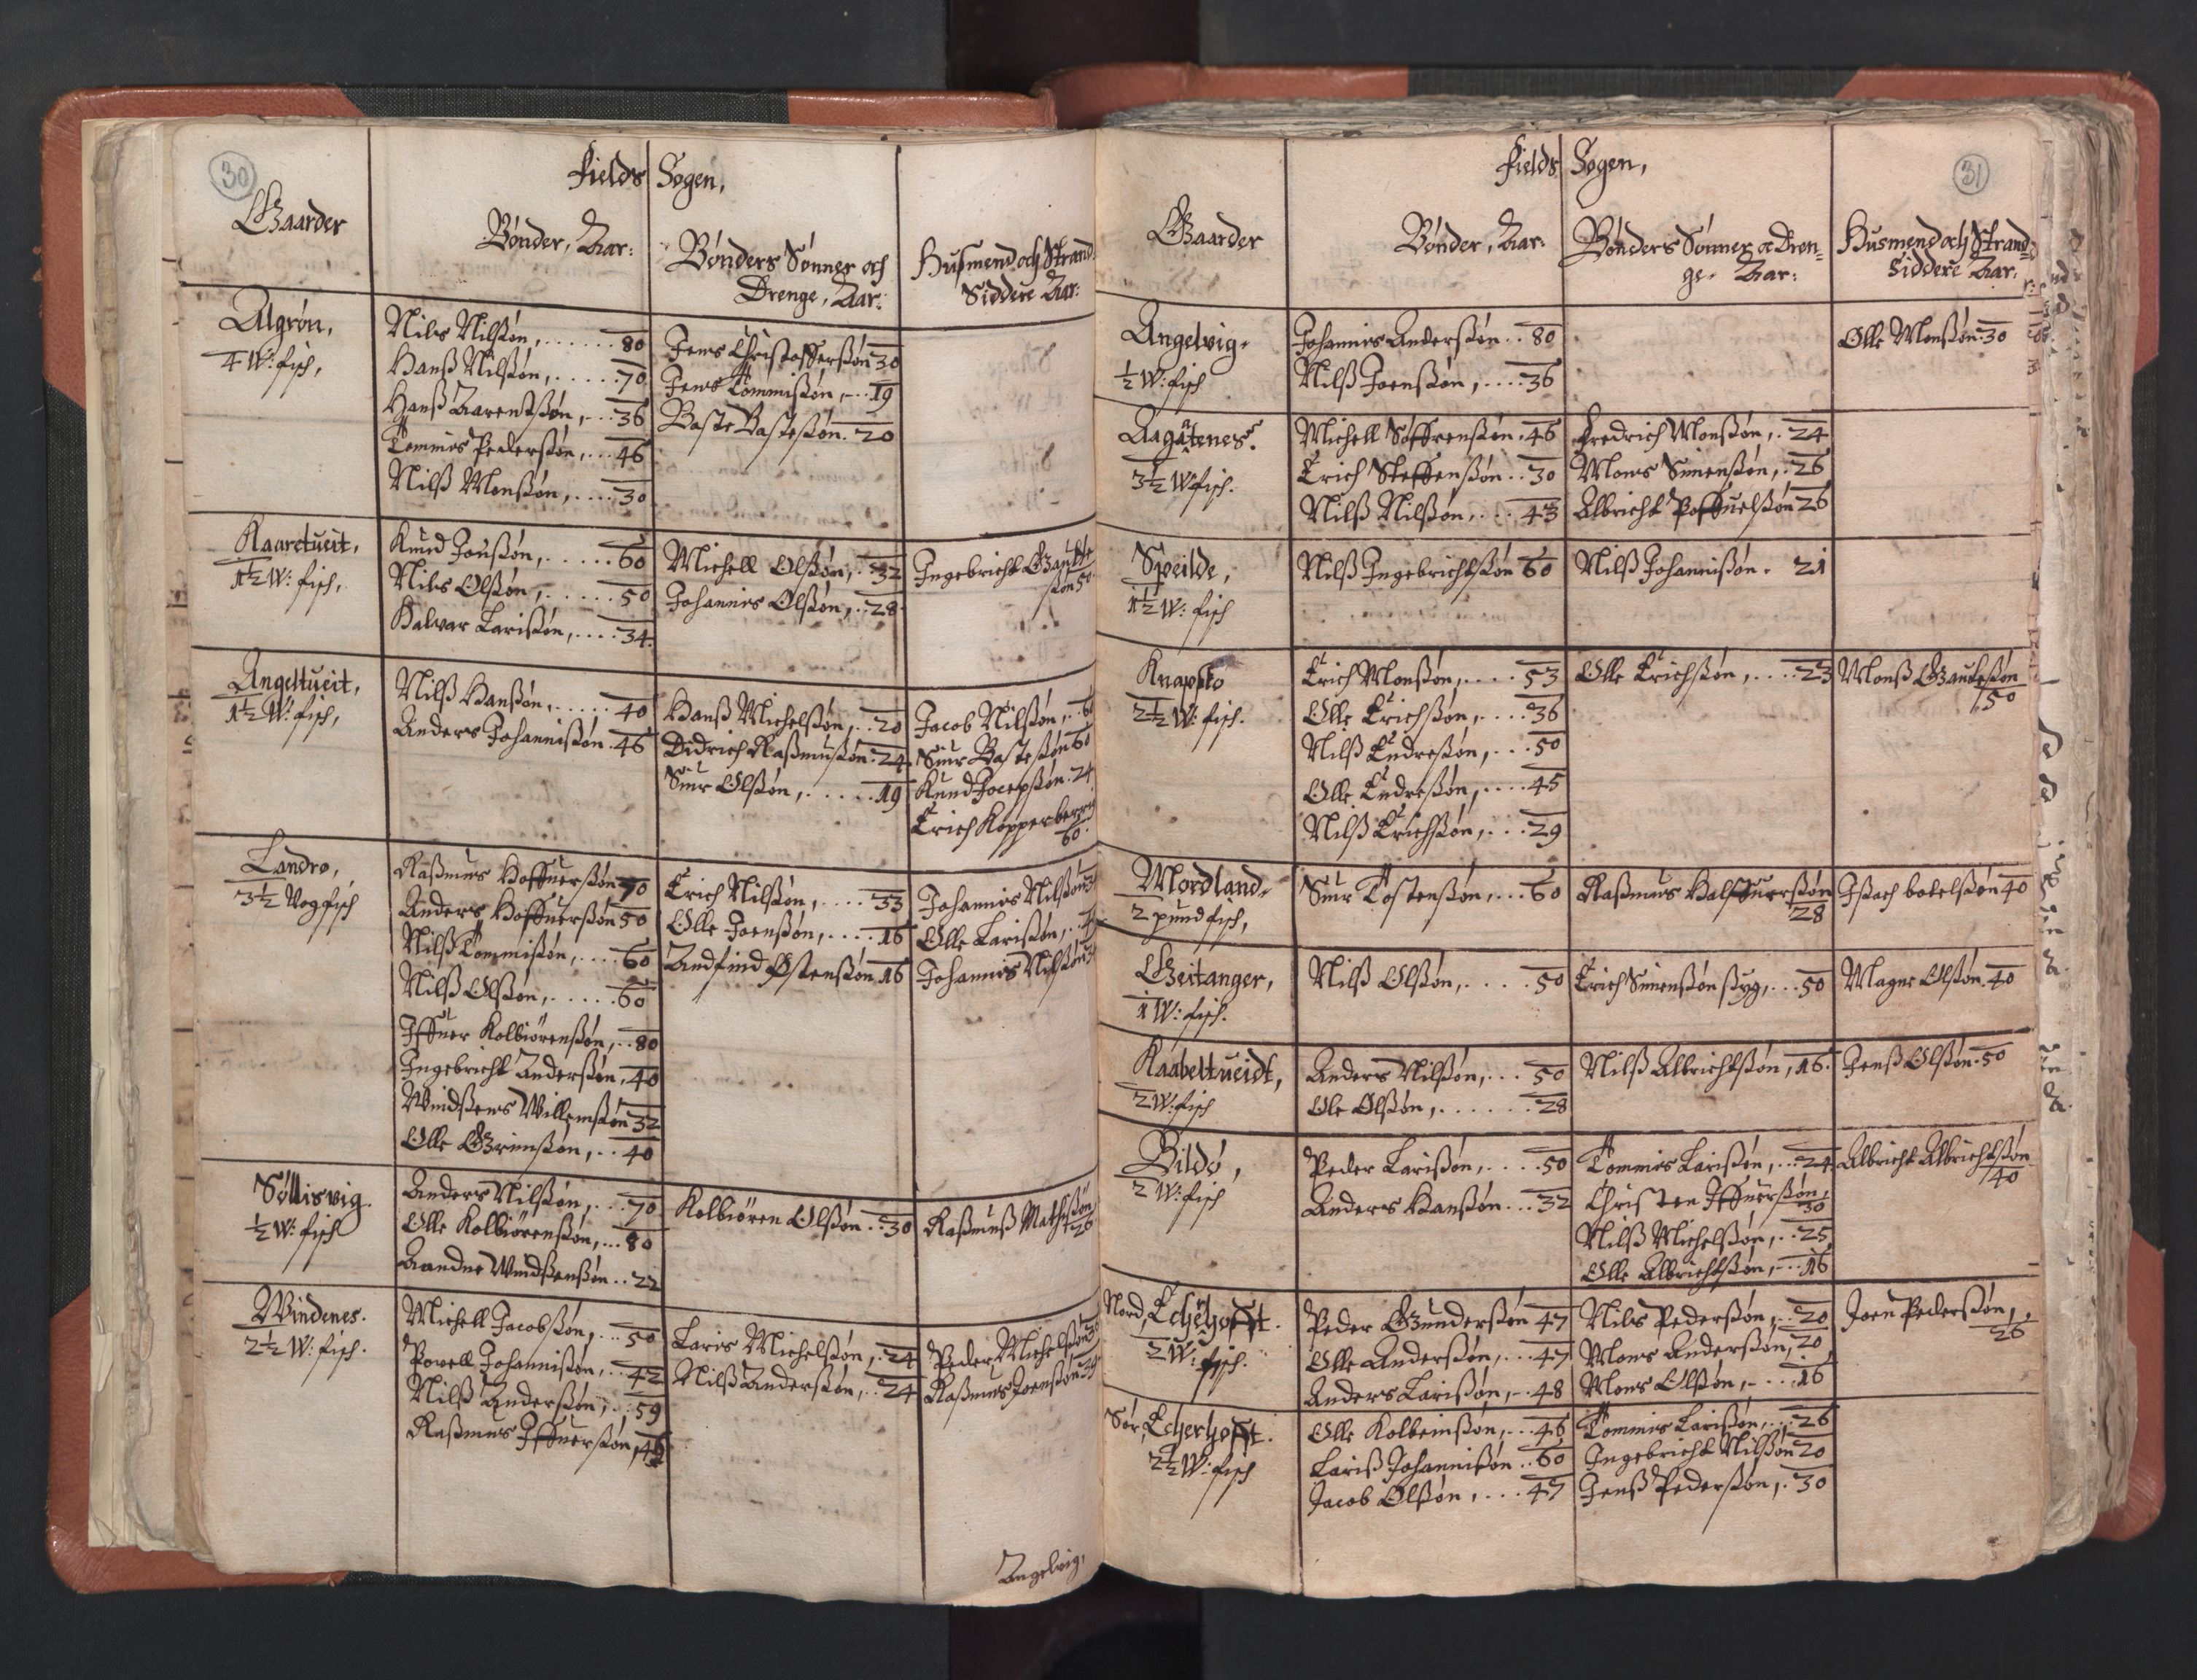 30
Fields Sogen,
Gaarder
Bønder, Aar:
Bønders Sønner och
Drenge, Aar:
Husmend och Strand
Siddere Aar:
Algrøn,
4 W: fisch,
Nils Nilßøn, . . . . . . 80
Hanß Nilßøn, . . . . . 70
Hanß Aarentßøn, . . 36
Tommis Pederßøn, . . . 46
Nilß Monßøn, . . . . 30
Jens Christofferßøn 30
Jens Tommißøn, . . 19
Baste Basteßøn. 20
Kaartueit,
1½ W: fisch,
Knud Jonßøn, . . . . . 60
Nils Olßøn, . . . . . . 50
Halvar Larißøn, . . . . 34
Michell Olßøn, . 32
Johannis Olßøn, . . 28
Ingebricht Gautte
ßøn 50
Angeltueit,
1½ W: fisch,
Nilß Hanßøn, . . . . . 40
Anders Johannißøn . 46
Hanß Michelßøn, . . 20
Didrich Raßmußøn . 24
Siur Olßøn, . . . . . 19
Jacob Nilßøn, . . 60
Siur Basteßøn 60
Knud Jocepßøn . 24
Erich Kopperberrig
60
Landro,
3½ Vog fisch
Raßmus Hoffuerßøn 70
Anders Hoffuerßøn 50
Nilß Tommißøn, . . . . 60
Nilß Olßøn, . . . . . 60
Iffuer Kolbiörenßøn, . . 80
Ingebricht Anderßøn, 40
Vindßens Willemßøn 32
Olle Grimßøn, . . 40
Erich Nilßøn, . . . . 33
Olle Joenßøn, . . . . 16
Andfind Østenßøn 16
Johannis Nilßøn
Olle Larißøn,
Johannis Nilßøn
Søllisvig
½ W: fisch
Anders Nilßøn, . . . 70
Olle Kolbiörenßøn, . . . 80
Aandne Vindßenßøn . . 22
Kolbiören Olßøn . . 30
Raßmuß Mathißøn
26
Windenes.
2½ W: fisch.
Michell Jacobßøn, . . . 50
Povell Johannißøn, . . . 42
Nilß Anderßøn, . . . 59
Raßmus Iffuerßøn, 46
Laris Michelßøn, . 24
Nilß Anderßøn, . . 24
Peder Michelßøn
Raßmus Joenßøn
Angelvig,
31
Fields Sogen,
Gaarder
Bønder, Aar:
Bønders Sønner oc Dren-
ge. Aar:
Husmend och Strand-
Siddere Aar:
Angelvig.
½ W: fisch
Johannis Anderßøn . . 80
Nilß Joenßøn, . . . . 36
Olle Monßøn . 30
Aagatenes.
3½ W fisch.
Michell Søffrenßøn . 46
Erich Steffenßøn . . 30
Nilß Nilßøn, . . . . 43
Fredrich Monßøn, . 24
Mons Simenßøn, . 26
Albricht Poffuelßøn 26
Speilde,
1½ W: fisch
Nilß Ingebrichtßøn 60
Nilß Johannißøn . 21
Knapsto
2½ W: fisch.
Erich Monßøn, . . . . 53
Olle Erichßøn, . . . . 36
Nilß Endreßøn, . . . 50
Olle Endreßøn, . . . . 45
Nilß Erichßøn, . . . 29
Olle Erichßøn, . . . . 23
Monß Gauteßøn
50
Mordland.
2 pund fisch,
Siur Tostenßøn, . . . 60
Raßmus Halffuerßøn
28
Ißach botelßøn 40
Geitanger,
1 W: fisch.
Nilß Olßøn, . . . . . 50
Erich Simenßøn ßyg, . . . 50
Magne Olßøn . 40
Kaabeltueidt,
2 W: fisch
Anders Nilßøn, . . . 50
Ole Olßøn, . . . . . . 28
Nilß Albrichtßøn, 16.
Jenß Olßøn . 50
Bildø,
2 W: fisch
Peder Larißøn, . . . . 50
Anders Hanßøn . . . 32
Tommis Larißøn, . . . 24
Christen Iffuerßøn,
30
Nilß Michelßøn, . . 25
Olle Albrichtßøn, . . 16
Albricht Albrichtßøn
40
Nord, Echerhofft.
2 W: fisch.
Peder Gunderßøn 47
Olle Anderßøn, . . . 47
Anders Larißøn, . . 48
Nils Pederßøn, . . 20
Mons Anderßøn, 20
Mons Olßøn, . . . 16
Joen Pederßøn,
26
Sør, Echerhofft.
2½ W: fisch
Olle Kolbeinßøn, . . 46
Lariß Johannißøn . . 60
Jacob Olßøn, . . . . 47
Tommis Larißøn, . . . 26
Ingebricht Nilßøn 20
Jenß Pederßøn, . 30